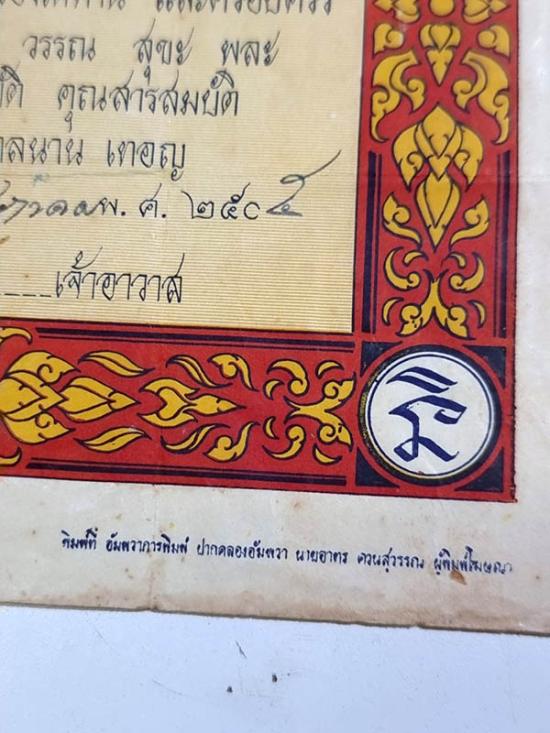 และครอบครัว
วรรณ สุขะ พละ
ติ คุณสารสมบัติ
ลนาน เทอญ
พ. ศ. ๒๕๐๕
เจ้าอาวาส
พิมพ์ที่ อัมพวาการพิมพ์ ปากคลองอัมพวา นายอาทร ผู้พิมพ์โฆษณา